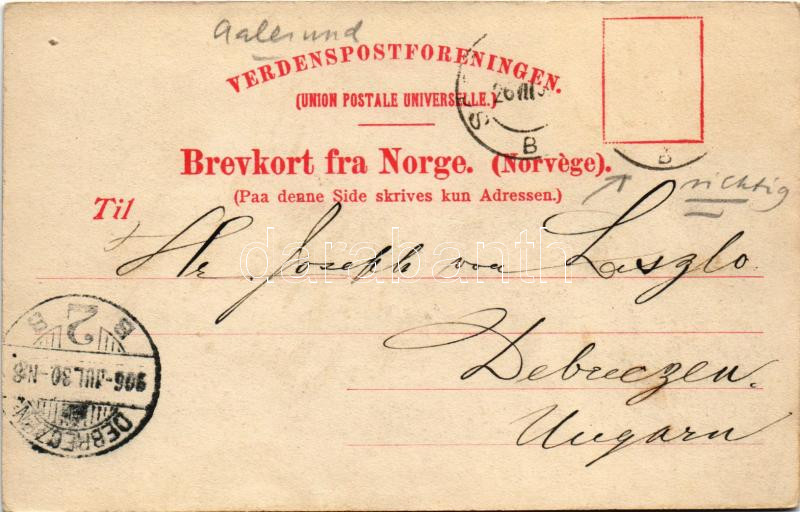 Aalesund
VERDENSPOSTFORENINGEN.
(UNION POSTALE UNIVERSELLE.)
26 VII
B
B
Brevkort fra Norge. (Norvège).
richtig
(Paa denne Side skrives kun Adressen.)
Til
Hr. Joseph von Laszlo
darabanth
Debreczen.
Ungarn
2
B B
906-JUL.30-N.8
DEBRECZEN